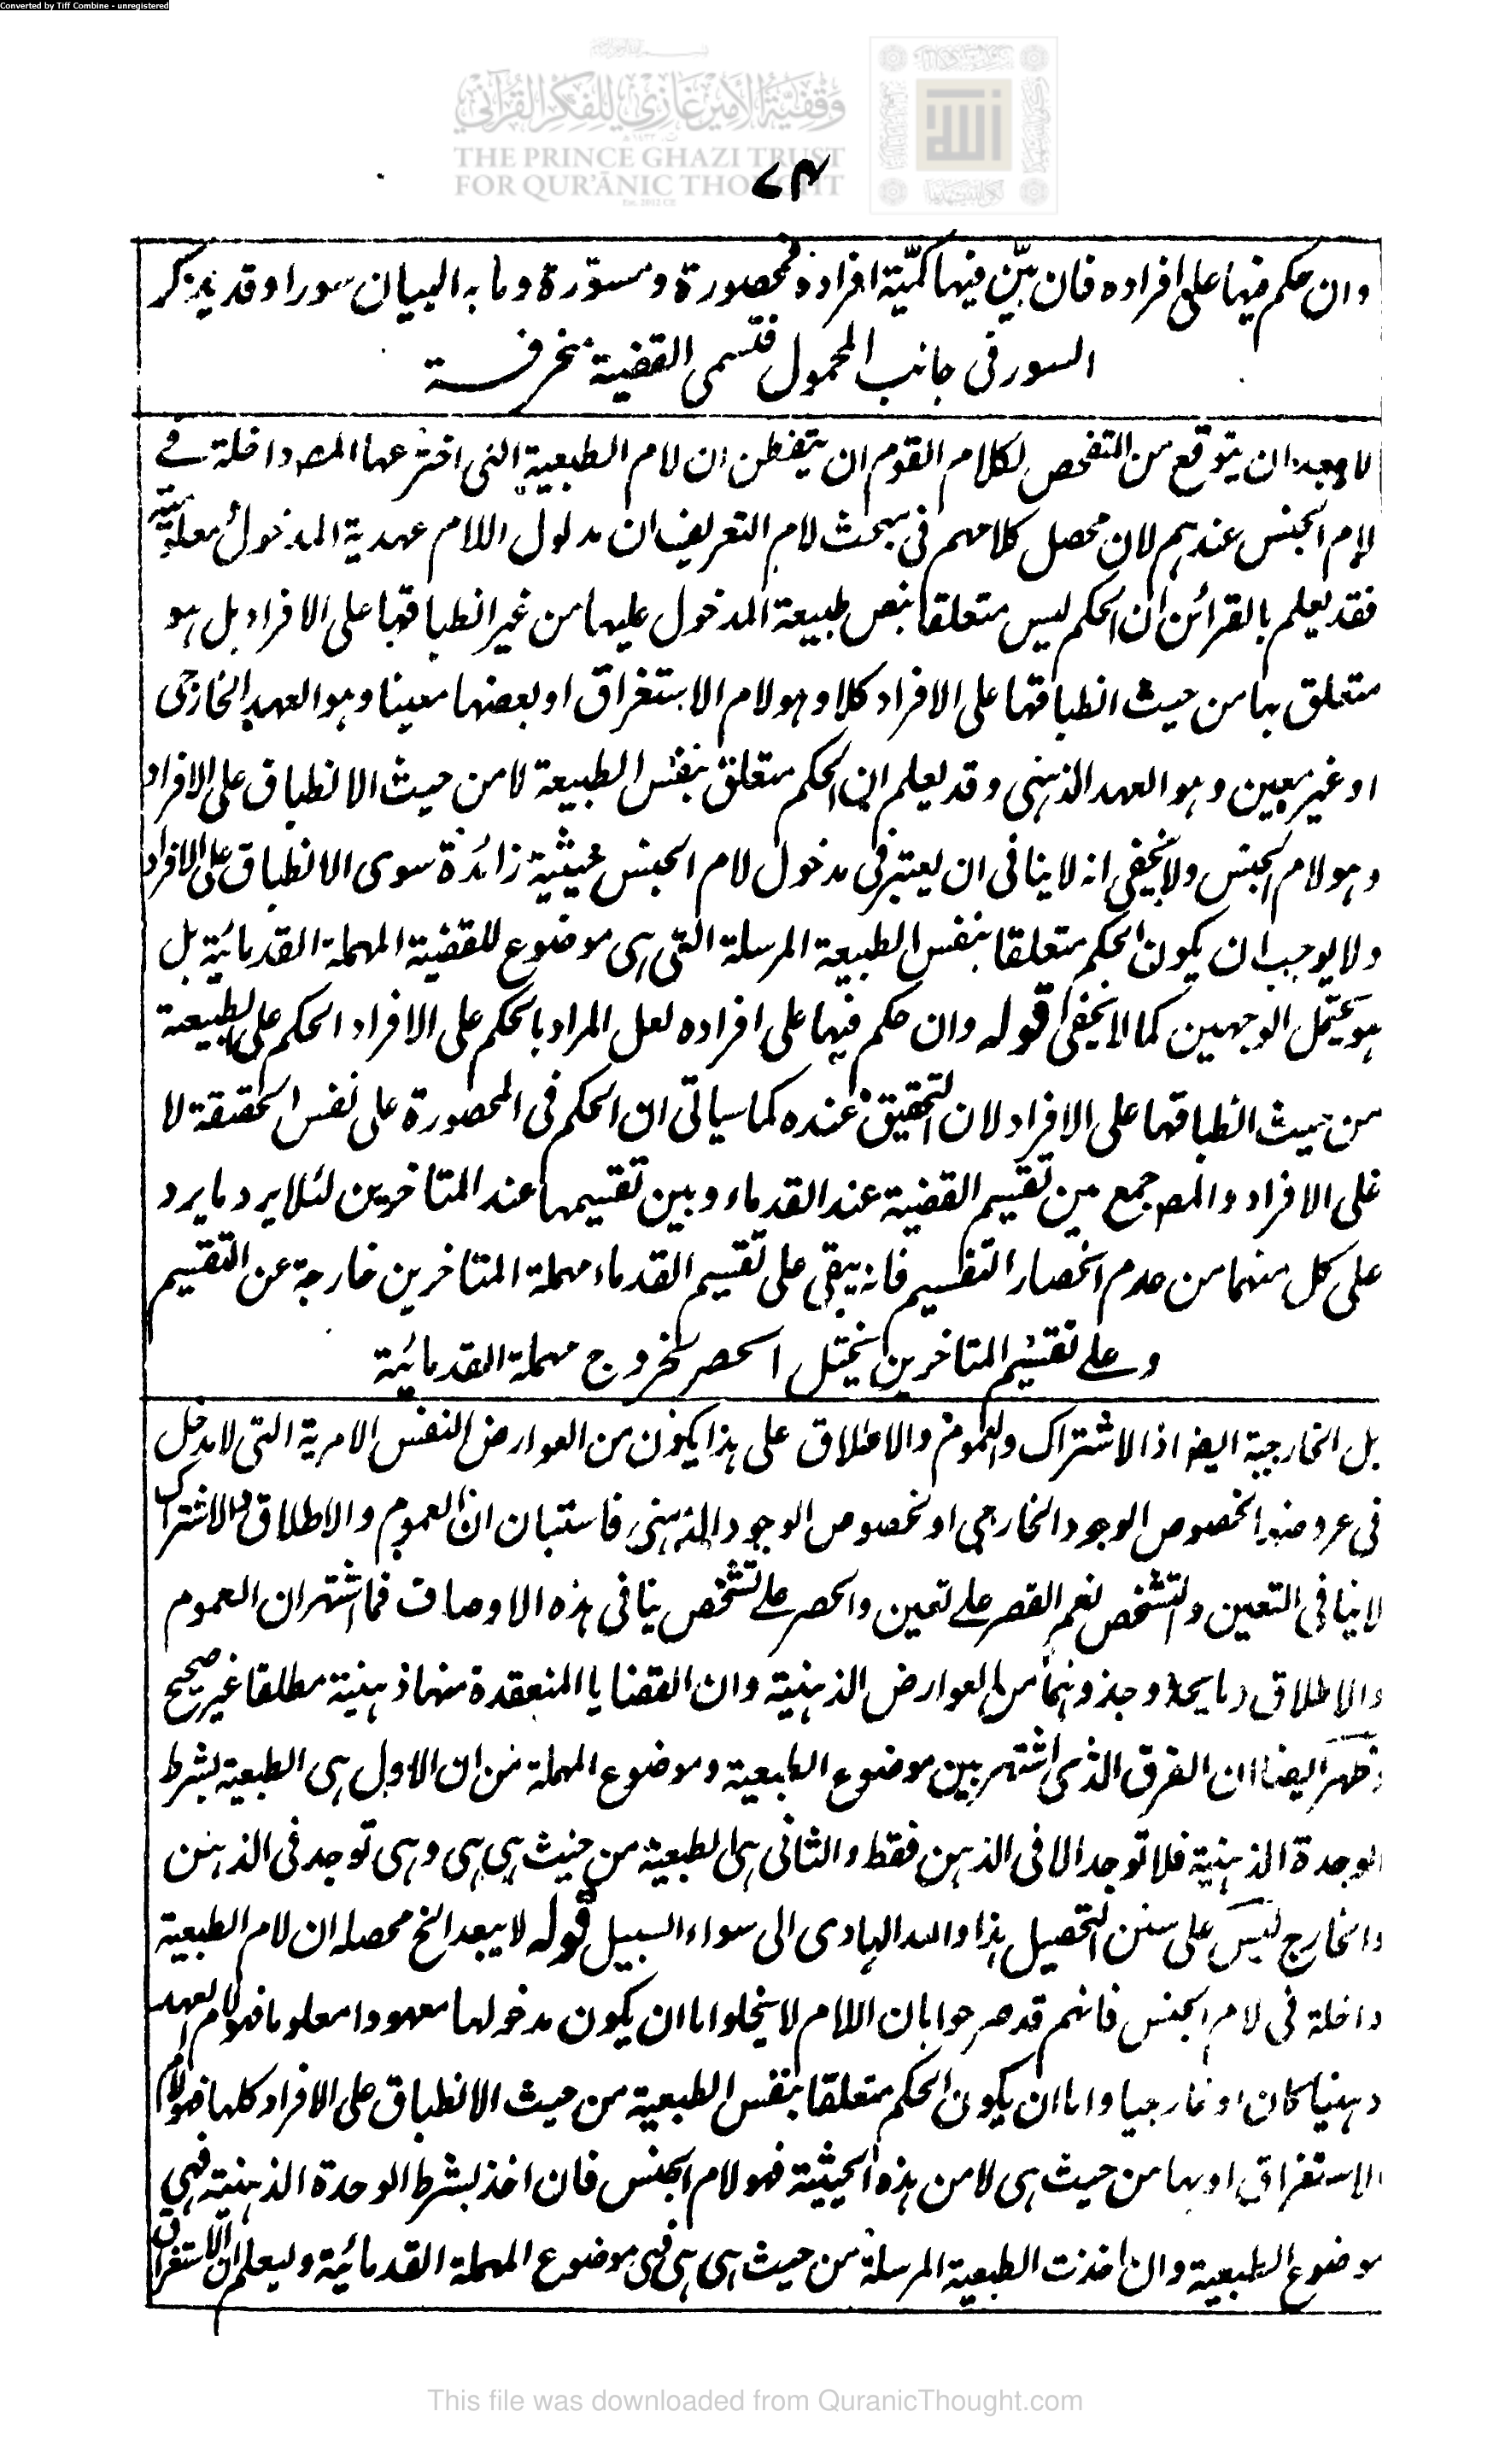 Converted by Tiff Combine - unregistered
وقفية الأمير غازي للفكر القرآني
THE PRINCE GHAZI TRUST
FOR QUR'ĀNIC THOUGHT
Est. 2012 CE
٧٤
وان حكم فيها على افراده فان بيّن فيها كميّة افراده فمحصورة ومسوّرة وما به البيان سورا وقد يذكر
السور فى جانب المحمول فتسمى القضية منحرفة
لا يبعد ان يتوقع من التفحص لكلام القوم ان يتفطن ان لام الطبعية التى اخترعها المص داخلة فے
لام الجنس عندهم لان محصل كلامهم فى مبحث لام التعريف ان مدلول اللام عهدية المدخول ومعلوميته
فقد يعلم بالقرائن ان الحكم ليس متعلقا بنفس طبيعة المدخول عليها من غير انطباقها على الافراد بل هو
متعلق بها من حيث انطباقها على الافراد كلا وهو لام الاستغراق او بعضها معينا وهو العهد الخارجى
او غير معين وهو العهد الذهنى وقد يعلم ان الحكم متعلق بنفس الطبيعة لا من حيث الانطباق على الافراد
وهو لام الجنس ولا يخفى انه لا ينافى ان يعتبر فى مدخول لام الجنس حيثية زائدة سوى الانطباق على الافراد
ولا يوجب ان يكون الحكم متعلقا بنفس الطبيعة المرسلة التى هى موضوع للقضية المهملة القدمائية بل
هو يحتمل الوجهين كما لا يخفى قوله وان حكم فيها على افراده لعل المراد بالحكم على الافراد الحكم على الطبيعة
من حيث انطباقها على الافراد لان التحقيق عنده كما سياتى ان الحكم فى المحصورة على نفس الحقيقة لا
على الافراد والمص جمع بين تقسيم القضية عند القدماء وبين تقسيمها عند المتاخرين لئلا يرد ما يرد
على كل منهما من عدم انحصار التقسيم فانه يبقى على تقسيم القدماء مهملة المتاخرين خارجة عن التقسيم
وعلے تقسيم المتاخرين يختل الحصر بخروج مهملة القدمائية
بل الخارجية ايضا اذ الاشتراك والعموم والاطلاق على هذا يكون من العوارض النفس الامرية التى لا مدخل
فى عروضها لخصوص الوجود الخارجى او لخصوص الوجود الذهنى فاستبان ان العموم والاطلاق والاشتراك
لا ينافى التعين والتشخص نعم القصر علے تعين والحصر علے تشخص ينافى هذه الاوصاف فما اشتهر ان العموم
والاطلاق وما يحذو حذوهما من العوارض الذهنية وان القضايا المنعقدة منها ذهنية مطلقا غير صحيح
وظهر ايضا ان الفرق الذى اشتهر بين موضوع الطبعية وموضوع المهملة من ان الاول هى الطبعية بشرط
الوحدة الذهنية فلا توجد الا فى الذهن فقط والثانى هى الطبعية من حيث هى هى وهى توجد فى الذهن
والخارج ليس على سنن التحصيل هذا والله الهادى الى سواء السبيل قوله لا يبعد الخ محصله ان لام الطبعية
داخلة فى لام الجنس فانهم قد صرحوا بان اللام لا يخلو اما ان يكون مدخولها معهودا معلوما فهو لام العهد
ذهنيا كان او خارجيا واما ان يكون الحكم متعلقا بنفس الطبعية من حيث الانطباق على الافراد كلها فهو لام
الاستغراق او بها من حيث هى لا من هذه الحيثية فهو لام الجنس فان اخذ بشرط الوحدة الذهنية فهى
موضوع الطبعية وان اخذت الطبعية المرسلة من حيث هى هى فهى موضوع المهملة القدمائية وليعلم ان الاستغراق
This file was downloaded from QuranicThought.com